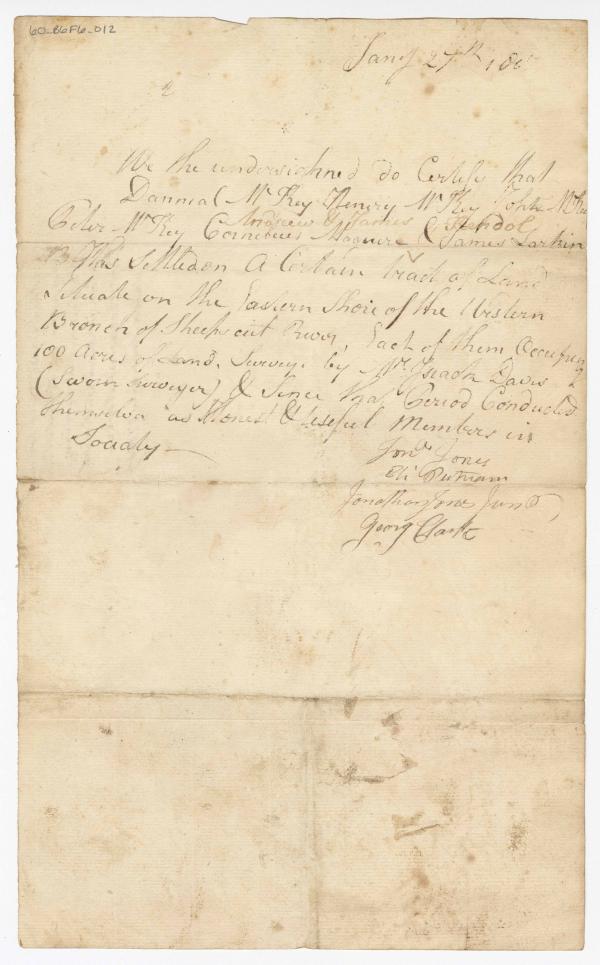 60-B6F6-012
Jany 27th
We the undersighned do Certify that
Dannial McKey Henery McKey John McKee
Andrew & James Kendol
Peter McKey Cornelius Maguire & James Larkin
Has Settled on A Certain tract of Land
Situate on the Eastern Shore of the Western
Branch of Sheepscut River, Each of them Occupying
100 Acres of Land, Survey'd by Mr Isack Davis
(Sworn Surveyer) & Since that Period Conducted
themselves as Honest & Useful Members in
Society
Jona Jones
Eli Putnam
Jonathan Jones Junr
Georg Clark